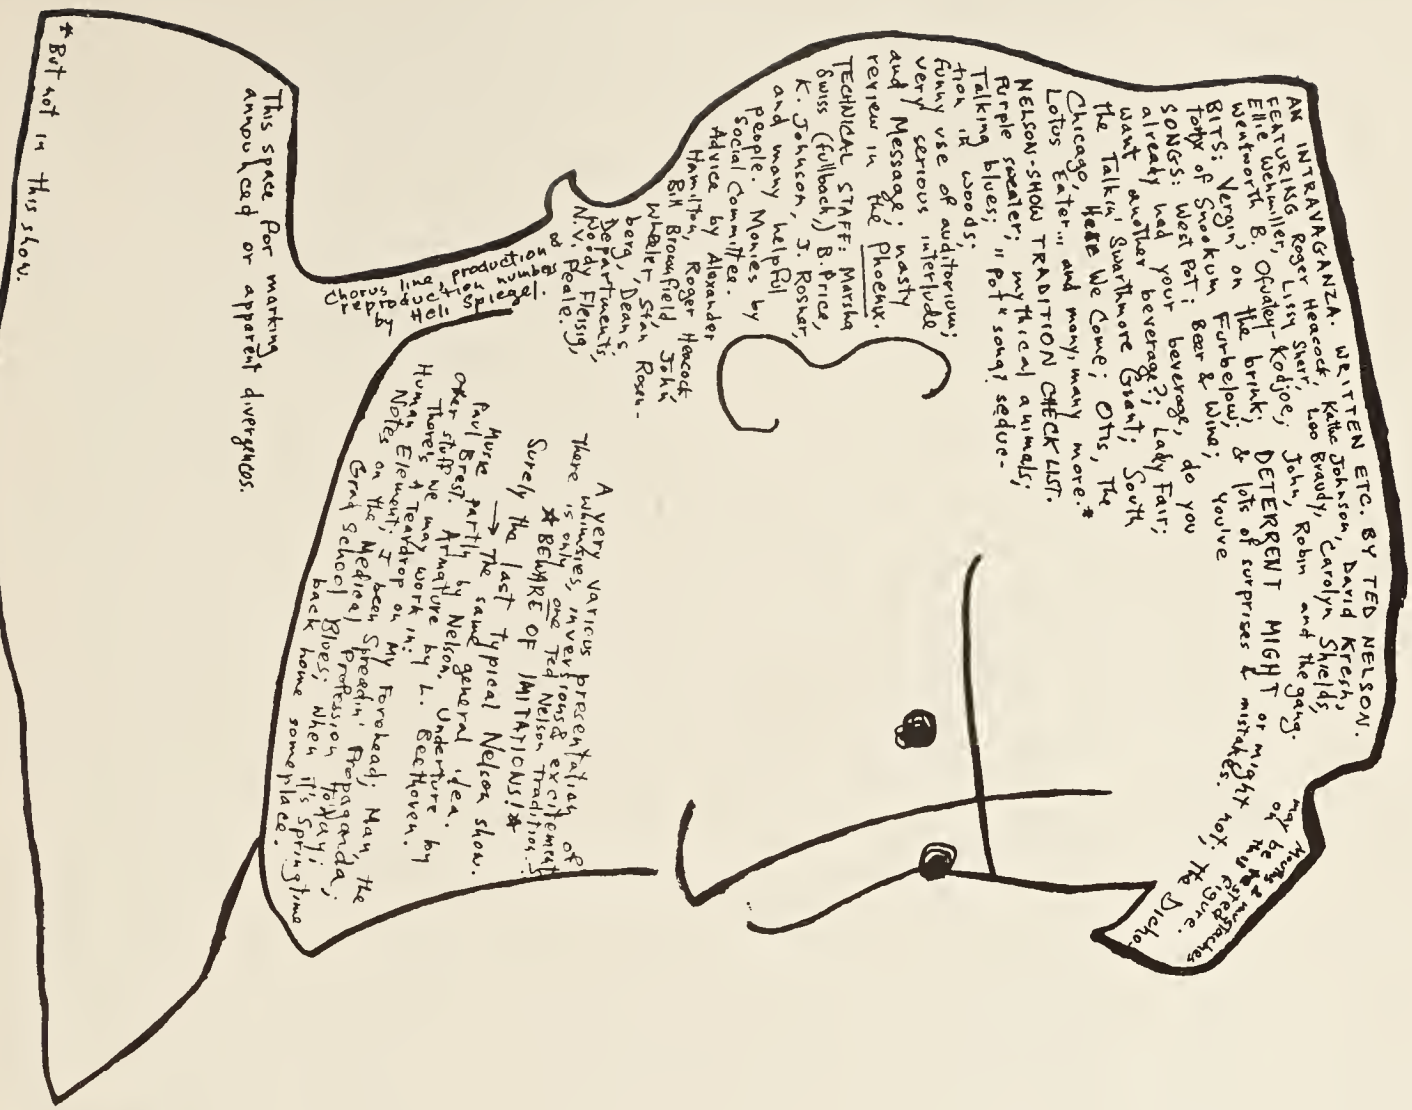 AN INTRAVAGANZA. WRITTEN ETC. BY TED NELSON.
FEATURING Roger Heacock, Kathe Johnson, David Kresh,
Ellie Wehmiller, Lissy Sherr, Leo Braudy, Carolyn Shields,
Wentworth B. Ofuatey-Kodjoe, John, Robin and the gang.
BITS: Vergin' on the brink; DETERRENT MIGHT or might not; the Dicho-
tomy of Snookum Furbelow; & lots of surprises & mistakes.
SONGS: West Pot; Beer & Wine; You've
already had your beverage, do you
want another beverage?; Lady Fair;
the Talkin' Swarthmore Grant; South
Chicago, Here We Come; Otis, the
Lotus Eater... and many, many more.*
NELSON-SHOW TRADITION CHECK LIST.
Purple sweater; mythical animals;
Talking blues; "pot" song; seduc-
tion in woods;
funny use of auditorium;
very serious interlude
and Message; nasty
review in the Phoenix.
TECHNICAL STAFF: Marsha
Swiss (fullback,) B. Price,
K. Johnson, J. Rosner,
and many helpful
people. Monies by
Social Committee.
Advice by Alexander
Hamilton, Roger Heacock
Bill Brownfield, John
Wheeler, Stan Rosen-
berg, Deans,
Departments,
Woody Fleisig,
N.V. Peale.
Chorus line, production of
crepproduction numbers
by Heli Spiegel.
Mouths & mustaches
may be tested
on this figure.
A very various presentation of
there whimsies, inversions & excitement
is only one Ted Nelson tradition.
★ BEWARE OF IMITATIONS! ★
Surely the last typical Nelson show.
→ The same general idea.
Music partly by Nelson, Underture by
Paul Brest. Armature by L. Beethoven.
Other stuff we may work in:
There's A Teardrop on My Forehead; Man, the
Human Element; I been Spreadin' Propaganda;
Notes on the Medical Profession Today;
Grad School Blues; When it's Springtime
back home someplace.
This space for marking
announced or apparent divergences.
* But not in this show.